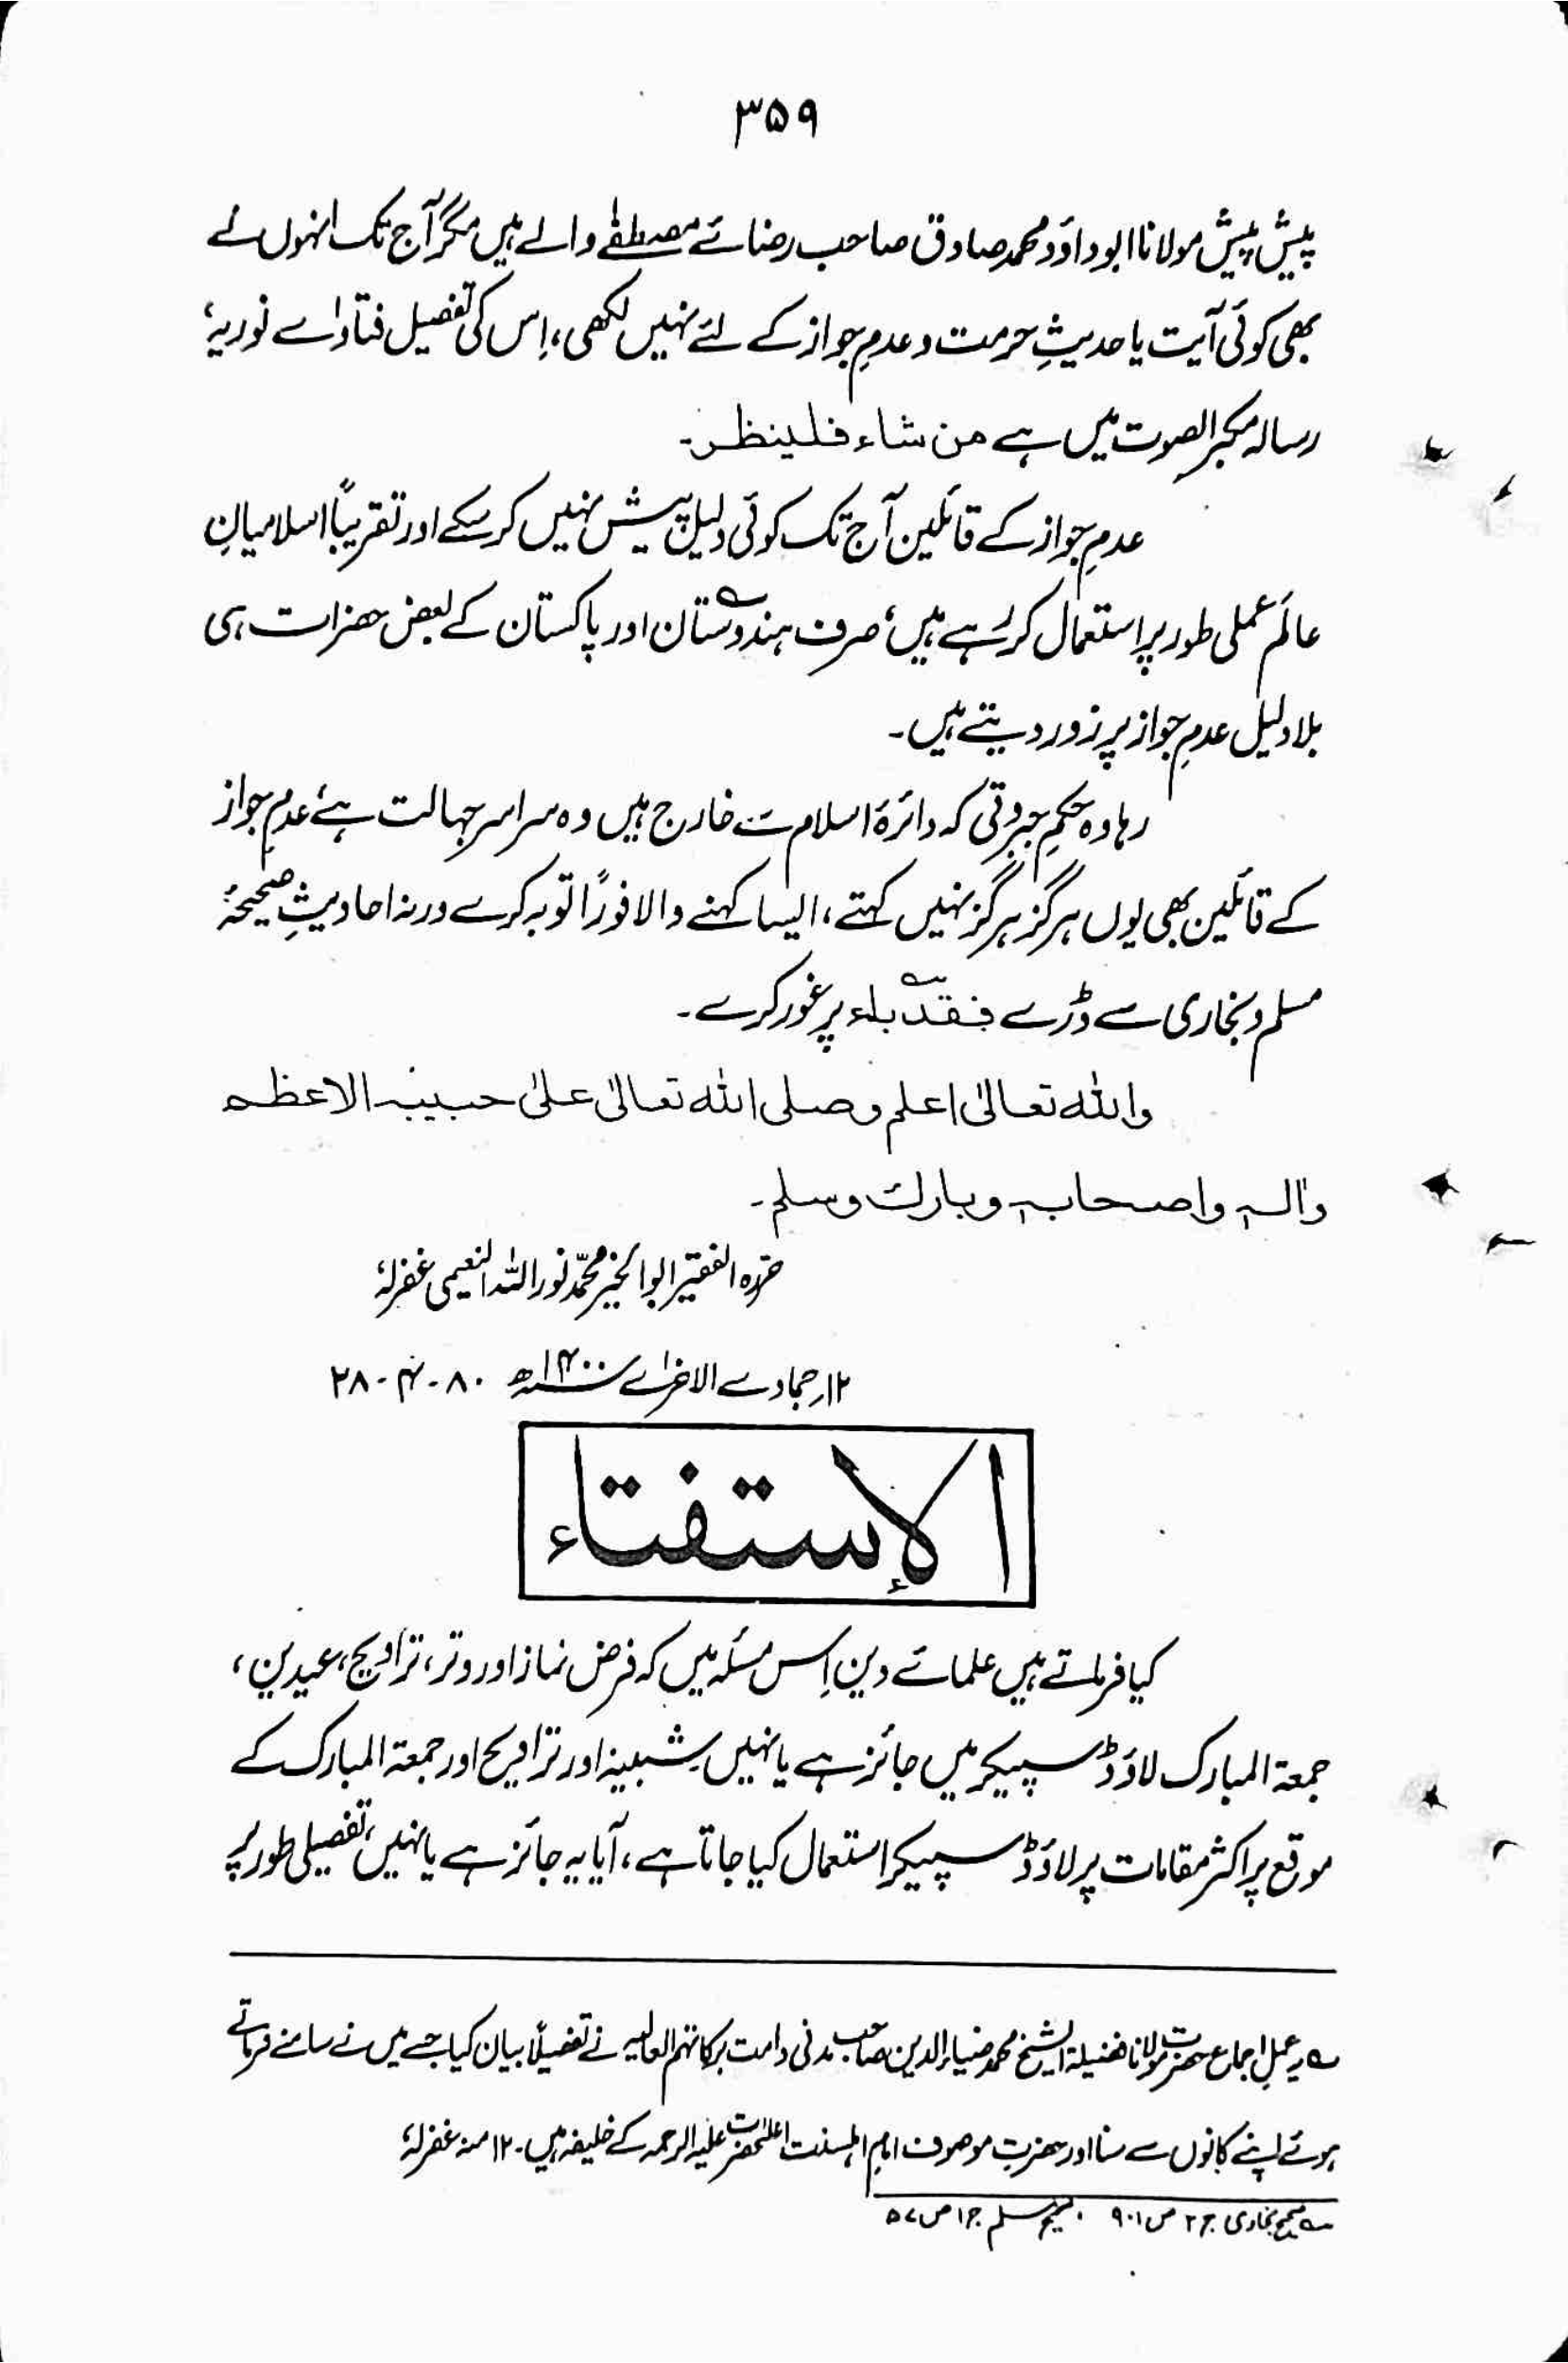 ۳۵۹
پیش پیش مولانا ابو داؤد محمد صادق صاحب رضائے مصطفےٰ والے ہیں مگر آج تک انہوں نے
بھی کوئی آیت یا حدیثِ حرمت و عدمِ جواز کے لئے نہیں لکھی، اِس کی تفصیل فتاوٰے نوریہ،
رسالہ مکبر الصوت میں ہے من شاء فلینظر۔
عدمِ جواز کے قائلین آج تک کوئی دلیل پیش نہیں کر سکے اور تقریباً اسلامیانِ
عالَم عملی طور پر استعمال کر رہے ہیں، صرف ہندوستان اور پاکستان کے بعض حضرات ہی
بلا دلیل عدمِ جواز پر زور دیتے ہیں۔
رہا وہ حکمِ جبروتی کہ دائرۂ اسلام سے خارج ہیں وہ سراسر جہالت ہے، عدمِ جواز
کے قائلین بھی یوں ہرگز ہرگز نہیں کہتے، ایسا کہنے والا فوراً توبہ کرے ورنہ احادیثِ صحیحۂ
مسلم و بخاری سے ڈرے فقد باء پر غور کرے۔
واللہ تعالیٰ اعلم وصلی اللہ تعالیٰ علیٰ حبیبہ الاعظم
واٰلہ واصحابہ وبارک وسلم۔
حررہ الفقیر ابو الخیر محمّد نور اللہ النعیمی غفرلہٗ
۱۲؍ جمادے الاخرٰے ۱۴۰۰ھ ۸۰-۴-۲۸
الإستفتاء
کیا فرماتے ہیں علمائے دین اِس مسئلہ میں کہ فرض نماز اور وتر، تراویح، عیدین،
جمعۃ المبارک لاؤڈ سپیکر میں جائز ہے یا نہیں، شبینہ اور تراویح اور جمعۃ المبارک کے
موقع پر اکثر مقامات پر لاؤڈ سپیکر استعمال کیا جاتا ہے، آیا یہ جائز ہے یا نہیں، تفصیلی طور پر
؎ یہ عملِ اجماع حضرت مولانا فضیلۃ الشیخ محمد ضیاء الدین صاحب مدنی دامت برکاتہم العالیہ نے تفصیلاً بیان کیا جسے میں نے سامنے فرماتے
ہوئے اپنے کانوں سے سنا اور حضرت موصوف امامِ اہلسنت اعلٰحضرت علیہ الرحمہ کے خلیفہ ہیں۔ ۱۲ منہ غفرلہٗ
؎ صحیح بخاری ج ۲ ص ۹۰۱ ، صحیح مسلم ج ۱ ص ۵۷